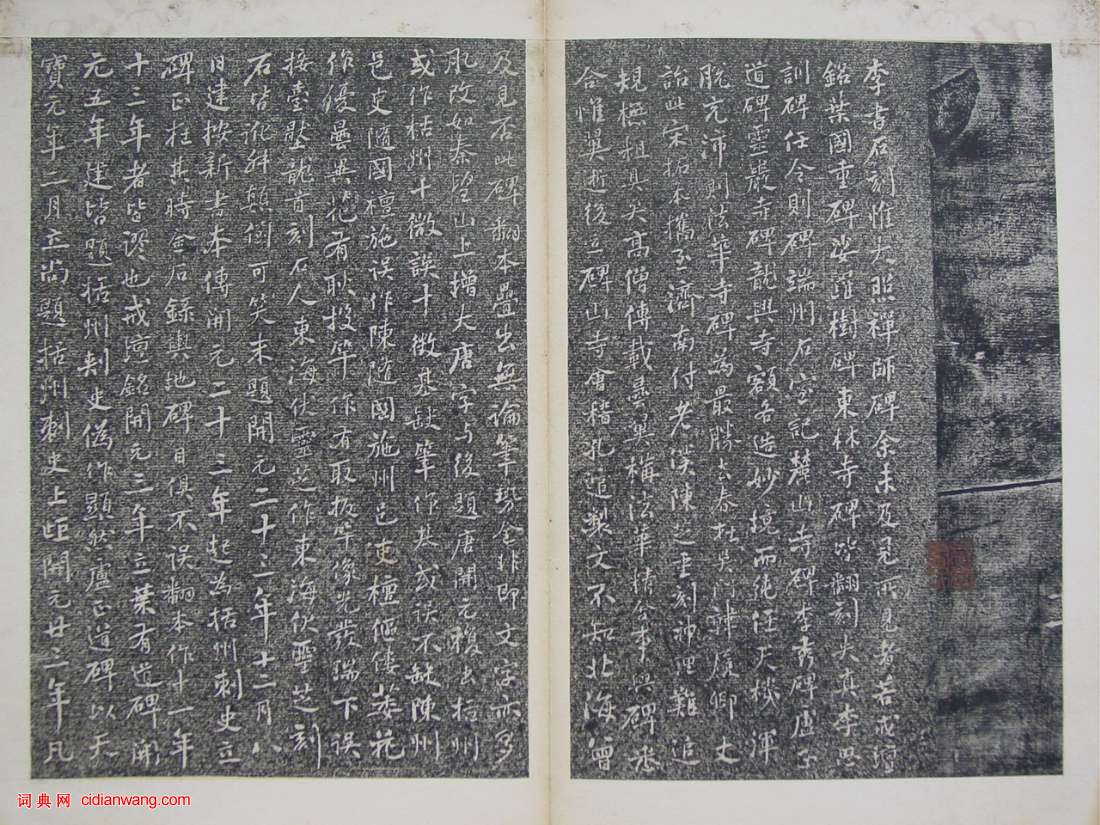 李書石刻惟大照禪師碑余未及見所見者若戒壇
銘葉國重碑娑羅樹碑東林寺碑皆翻刻大真李思
訓碑任令則碑端州石室記麓山寺碑李秀碑盧正
道碑靈巖寺碑龍興寺額各造妙境而純任天機渾
脫充沛則法華寺碑為最勝去春杜吳門神廣卿丈
詒此宋拓本攜至濟南付老漢陳之重刻神理難追
規橅粗具矣高僧傳載曇翼稱法華精舍事與碑悉
合惟翼逝後立碑山寺會稽孔逭製文不知北海曾
及見否此碑翻本疊出無論筆勢全非即文字亦多
肊改如秦望山上增大唐字与後題唐開元複出括州
或作栝州十微誤十徵基缺筆作基或誤不缺陳州
邑吏隨國檀施誤作陳隨國施州邑吏檀傴僂葵花
作優曇異花有耿投竿作有取振竿像光發瑞下誤
接臺壓龍首刻石人東海伏靈芝作東海伏聖芝刻
石皆訛舛顛倒可笑末題開元二十三年十二月八
日建按新書本傳開元二十三年起為括州刺史立
碑正在其時金石錄輿地碑目俱不誤翻本作十一年
十三年者皆謬也戒壇銘開元三年立葉有道碑開
元五年建皆題括州刺史偽作顯然盧正道碑以天
寶元年二月立尚題括州刺史上距開元廿三年凡
词典网 cidianwang.com